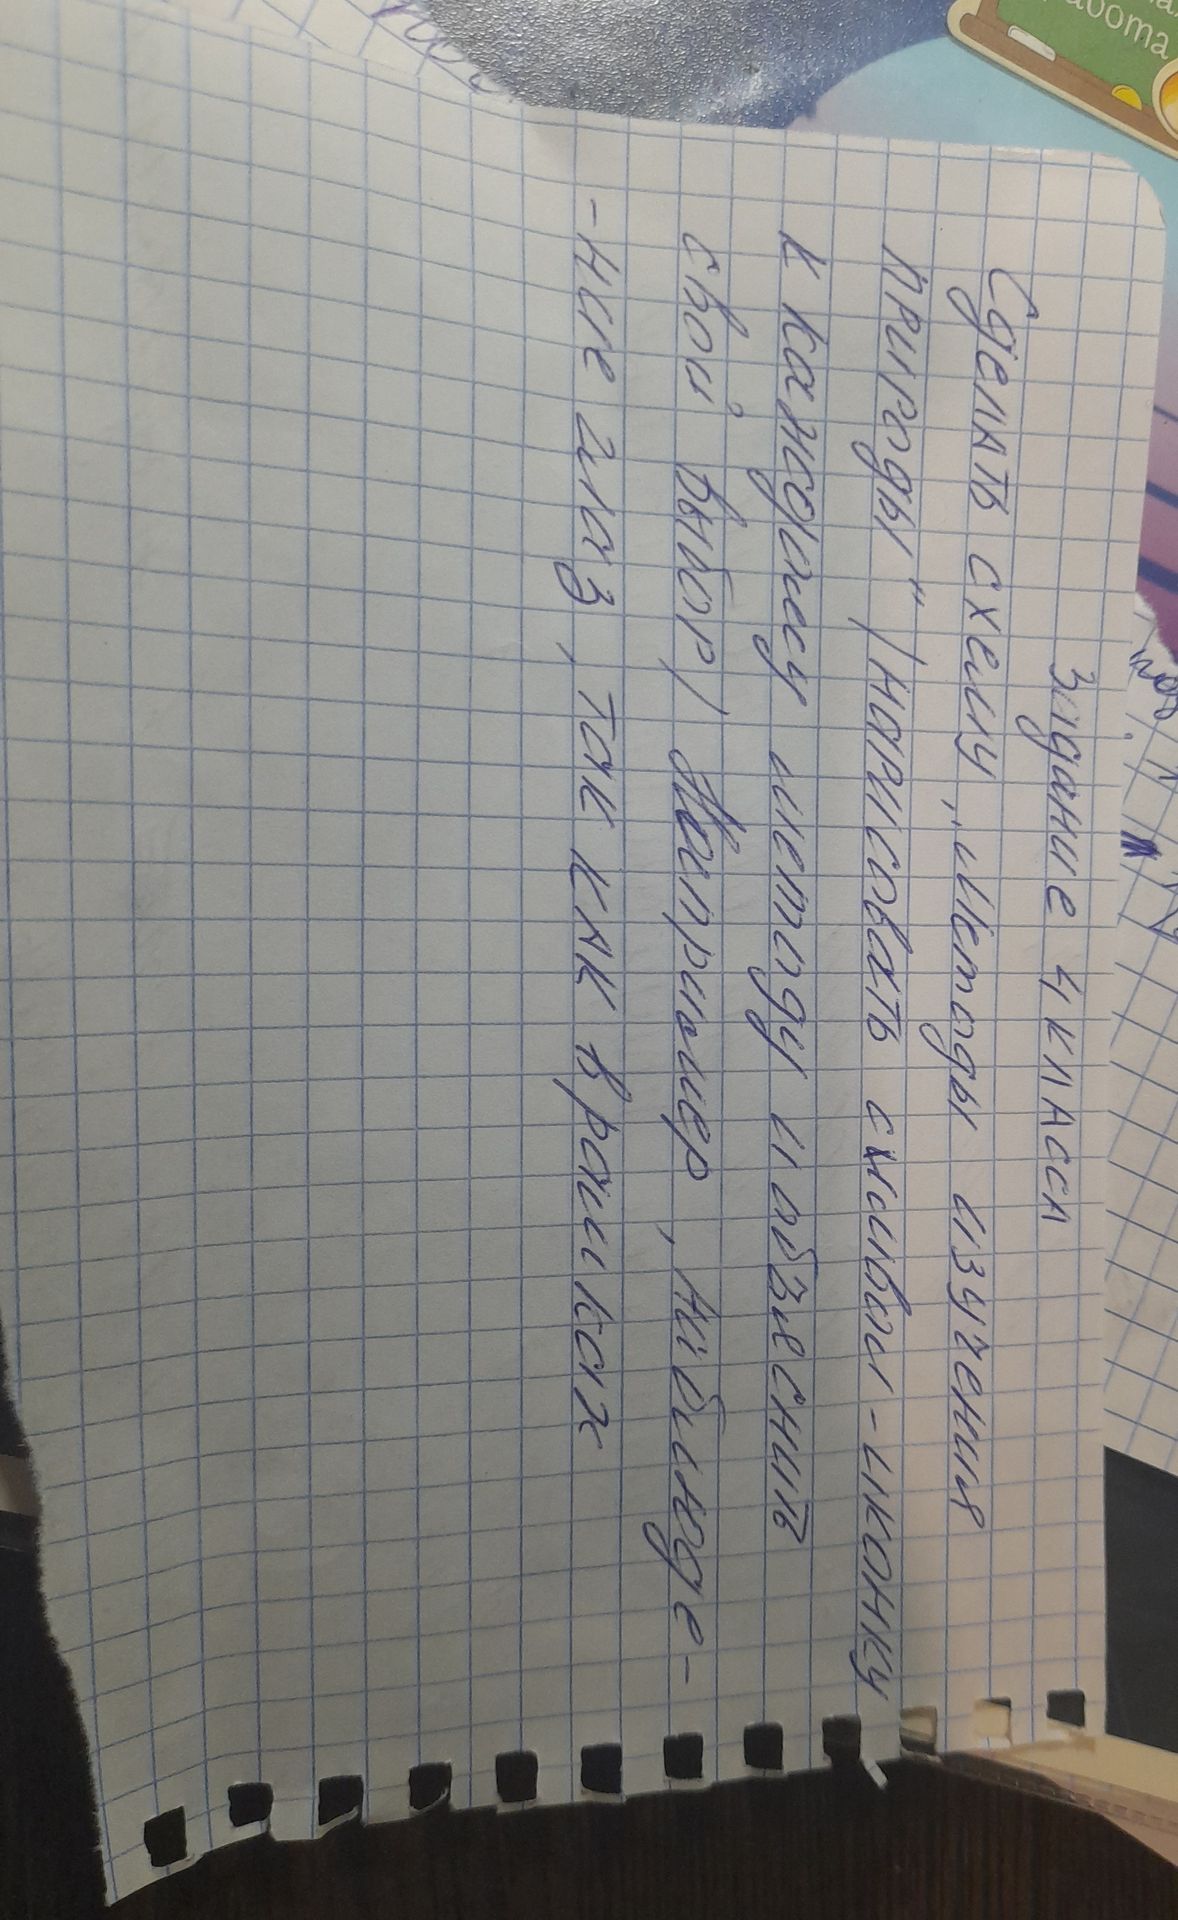 Задание 4 класса
Сделать схему „Методы изучения
природы" (нарисовать символ-иконку
к каждому методу и объяснить
свой выбор) Например, наблюде-
-ние глаз, так как в рамках
работа